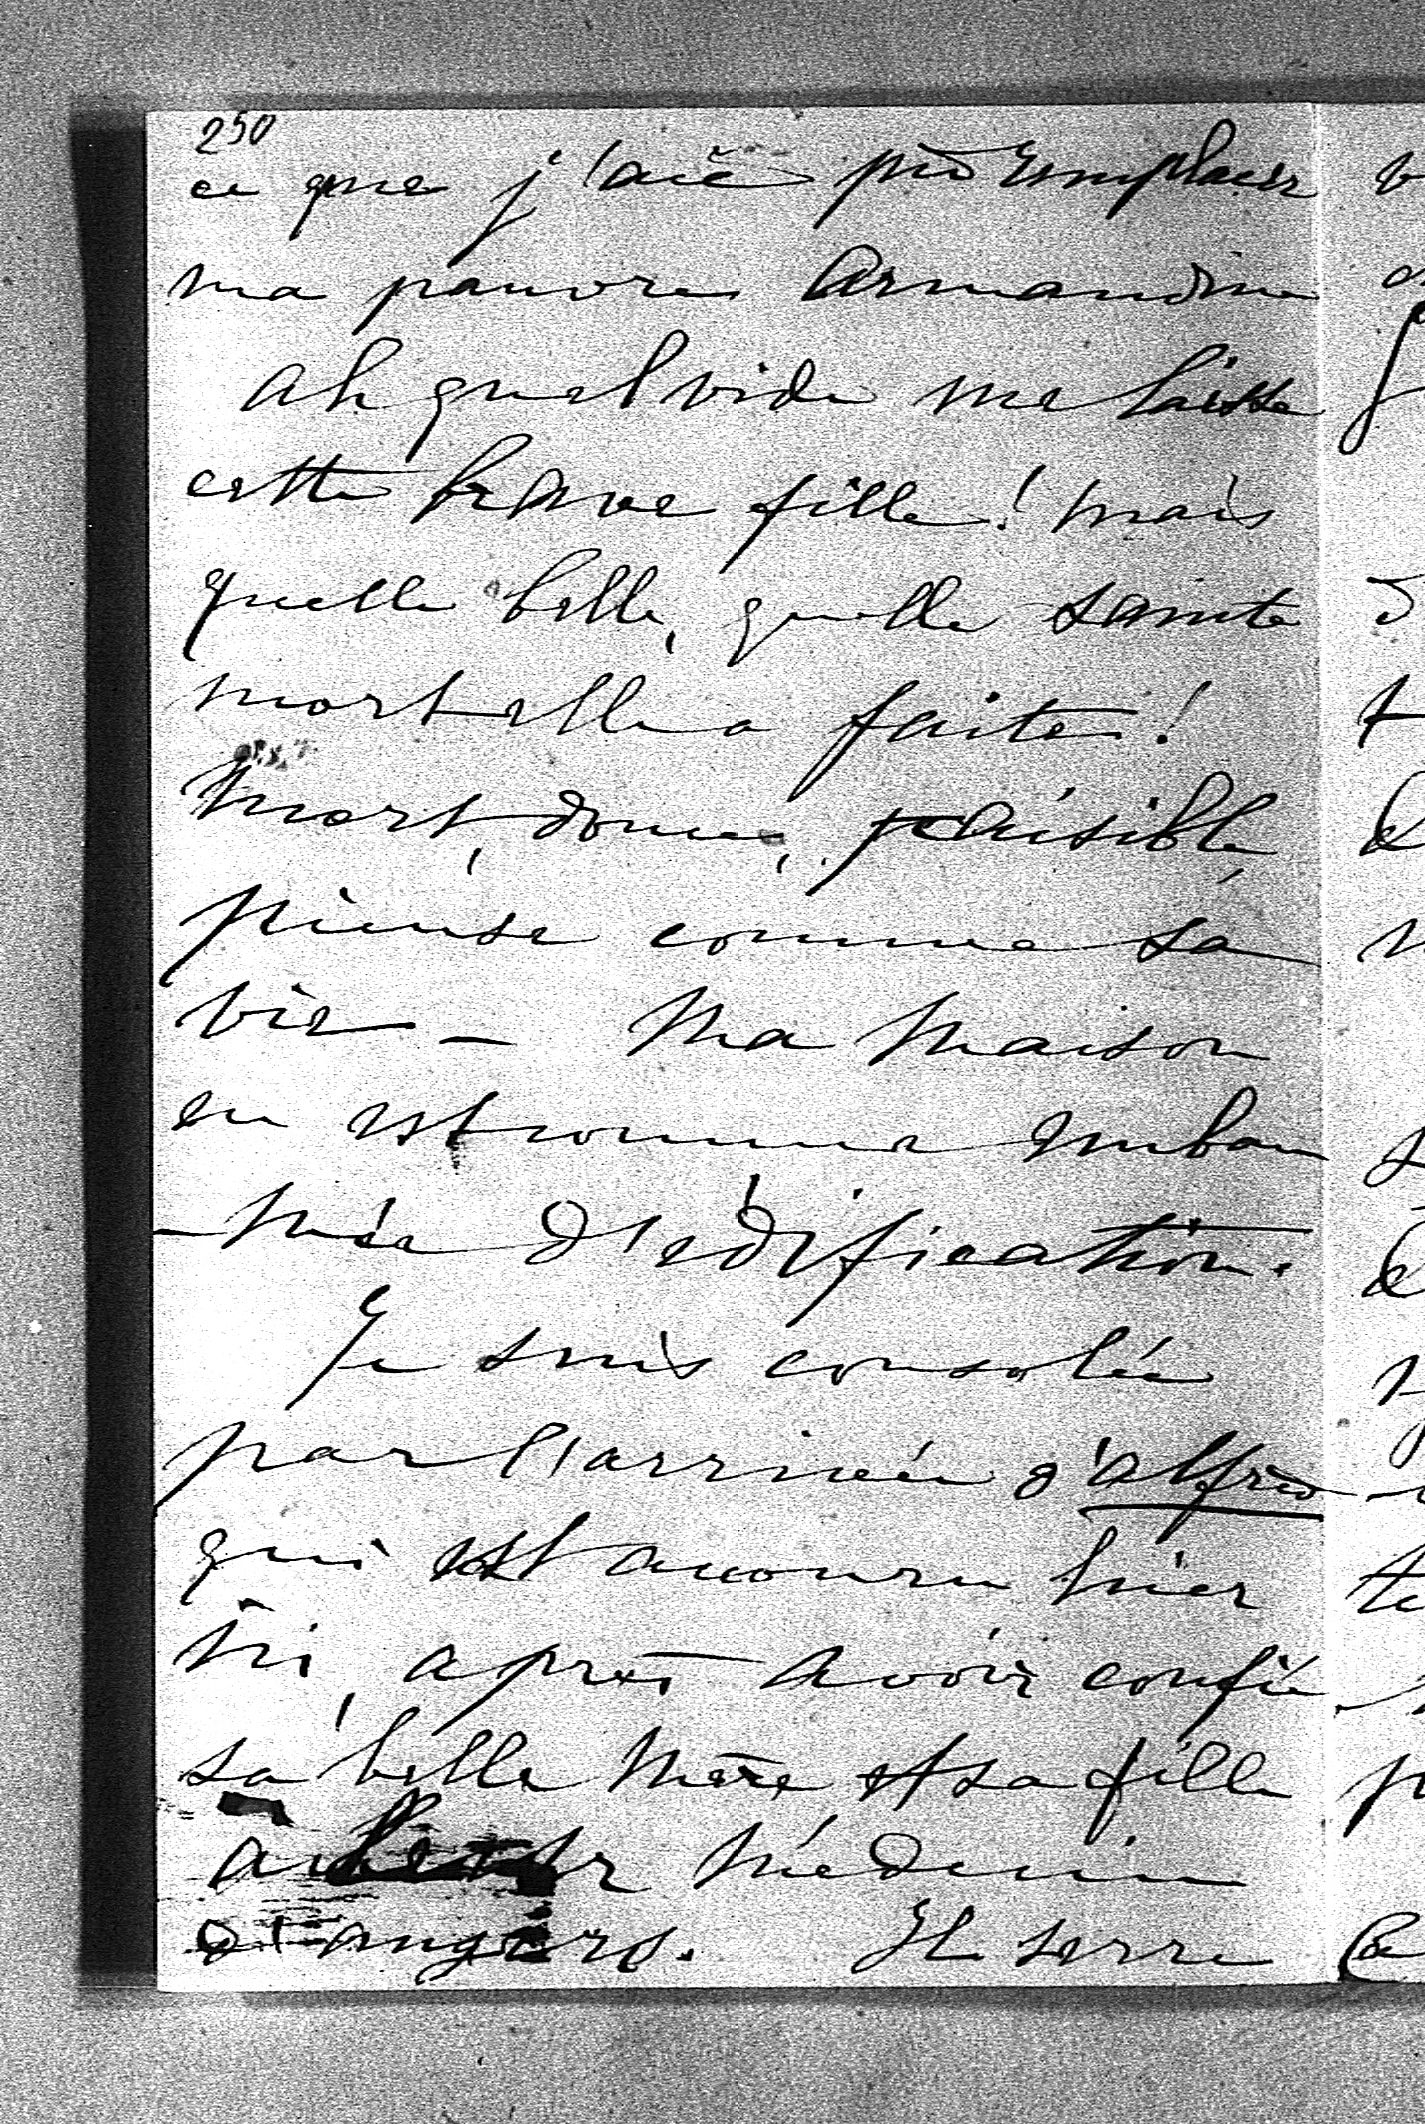 250
ce que j'aie pu remplacer
ma pauvre Armandine
Ah quel vide me laisse
cette brave fille ! mais
quelle belle, quelle sainte
mort elle a faite !
Mort, douce, paisible,
pieuse comme sa
vie — Ma maison
en est comme embau
-mée d'édification.
Je suis consolée
par l'arrivée d'Alfred
qui est accouru hier
ici, après avoir confié
sa belle mère et sa fille
à médecin
d'angers. Il serre